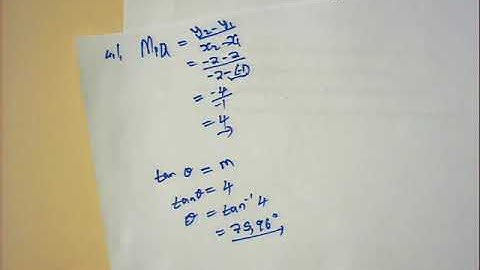 4.1 M_PQ = y₂-y₁/x₂-x₁
= -2-2/-2-(-1)
= -4/-1
= 4
tan θ = m
tan θ = 4
θ = tan⁻¹ 4
= 75,96°